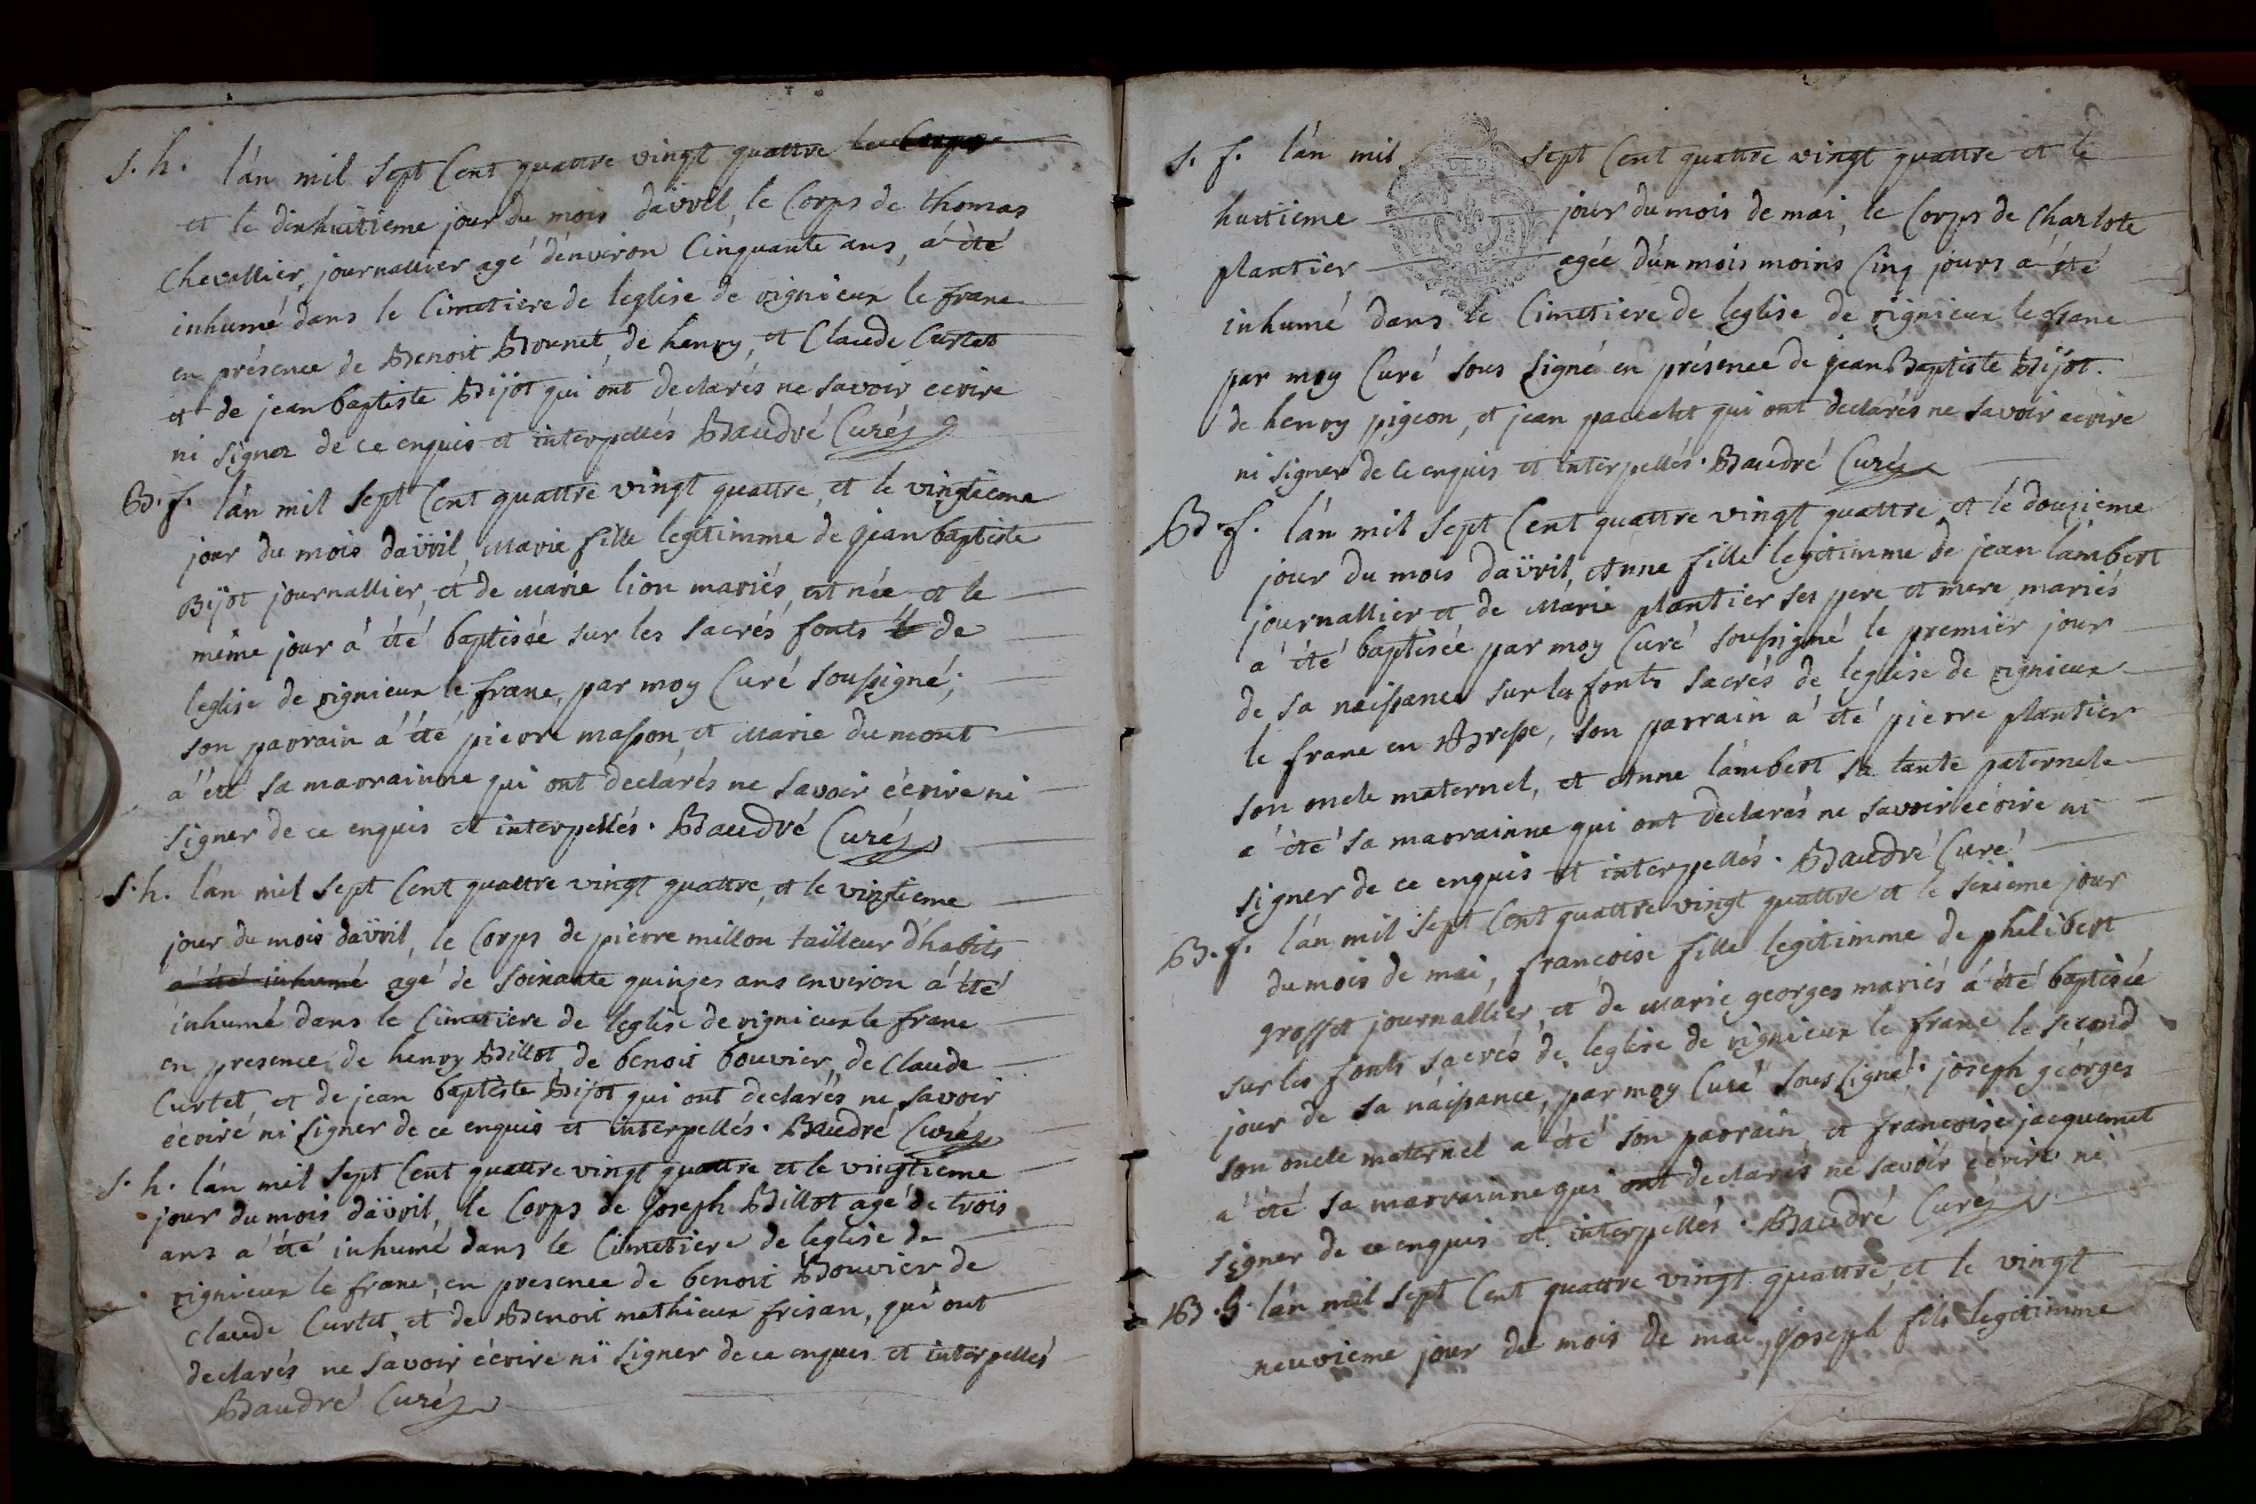 S. h. l'án mil sept Cent quattre vingt quattre le Corps
et le dixhuitieme jour du mois davril, le Corps de thomas
Chevallier, journallier agé dénviron Cinquante ans, á été
inhumé dans le Cimetiere de leglise de rignieux le franc
en présence de Benoit Bounet, de henry, et Claude Curtet
et de jean baptiste Bijot qui ont declarés ne savoir ecrire
ni signer de ce enquis et interpellés Baudré Curé
B. f. l'án mil sept Cent quattre vingt quattre, et le vingtieme
jour du mois daÿril, Marie fille legitimme de jean baptiste
Bijot journallier, et de Marie lion mariés, est née et le
même jour á été baptisée sur les sacrés fonts le de
leglise de rignieux le franc, par moy Curé soussigné;
son parrain á été pierre masson, et Marie dumont
á été sa marrainne qui ont declarés ne savoir écrire ni
signer de ce enquis et interpellés. Baudré Curé
S. h. l'án mil sept Cent quattre vingt quattre, et le vingtieme
jour du mois daÿril, le Corps de pierre millon tailleur d'habits
á été inhumé agé de soixante quinzes ans environ á été
inhumé dans le Cimetiere de leglise de rignieux le franc
en presence de henry Billot, de benoit bouvier, de Claude
Curtet, et de jean baptiste Bijot qui ont declarés ne savoir
écriré ni signer de ce enquis et interpellés. Baudré Curé
S. h. l'án mil sept Cent quattre vingt quattre et le vingtieme
jour du mois daÿril, le Corps de joseph Billot agé de trois
ans á été inhumé dans le Cimetiere de leglise de
rignieux le franc, en presence de benoit Bouvier, de
Claude Curtet, et de Benoit mathieux frisan, qui ont
declarés ne savoir écrire ni signer de ce enques et interpellés
Baudré Curé
S. f. l'án mil sept Cent quattre vingt quattre et le
huitieme jour du mois de mai, le Corps de Charlote
plantier agée d'ún mois moins Cinq jours á été
inhumé dans le Cimetiere de leglise de rignieux le franc
par moy Curé sous signé en présence de jean Baptiste Bijot.
de henry pigeon, et jean qui ont declarés ne savoir ecrire
ni signer de ce enquis et interpellés. Baudré Curé
B. f. l'án mil sept Cent quattre vingt quattre, et le douzieme
jour du mois daÿril, Anne fille legitimme de jean lámbert
journallier et de Marie plantier ses pere et mere mariés
á été baptisée par moy Curé soussigné le premier jour
de sa naissance sur les fonts sacrés de leglise de rignieux
le franc en Bresse, son parrain á été pierre plantier
son oncle maternel, et Anne lámbert sa tante paternele
á été sa marrainne qui ont declarés ne savoir écrire ni
signer de ce enquis et interpellés. Baudré Curé
B. f. l'án mil sept Cent quattre vingt quattre et le sixieme jour
du mois de mai, francoise fille legitimme de phelibert
grosset journallier, et de Marie georges mariés á été baptisée
sur les fonts sacrés de leglise de rignieux le franc le second
jour de sa náissance, par moy Curé sous signé. joseph géorges
son oncle maternel á été son parrain, et francoise jacquemet
á été sa marrainne qui ont declarés ne savoir écrire ni
signer de ce enquis et interpellés. Baudré Curé
B. h. l'án mil sept Cent quattre vingt quattre, et le vingt
neuvieme jour du mois de mai, joseph fils legitimme